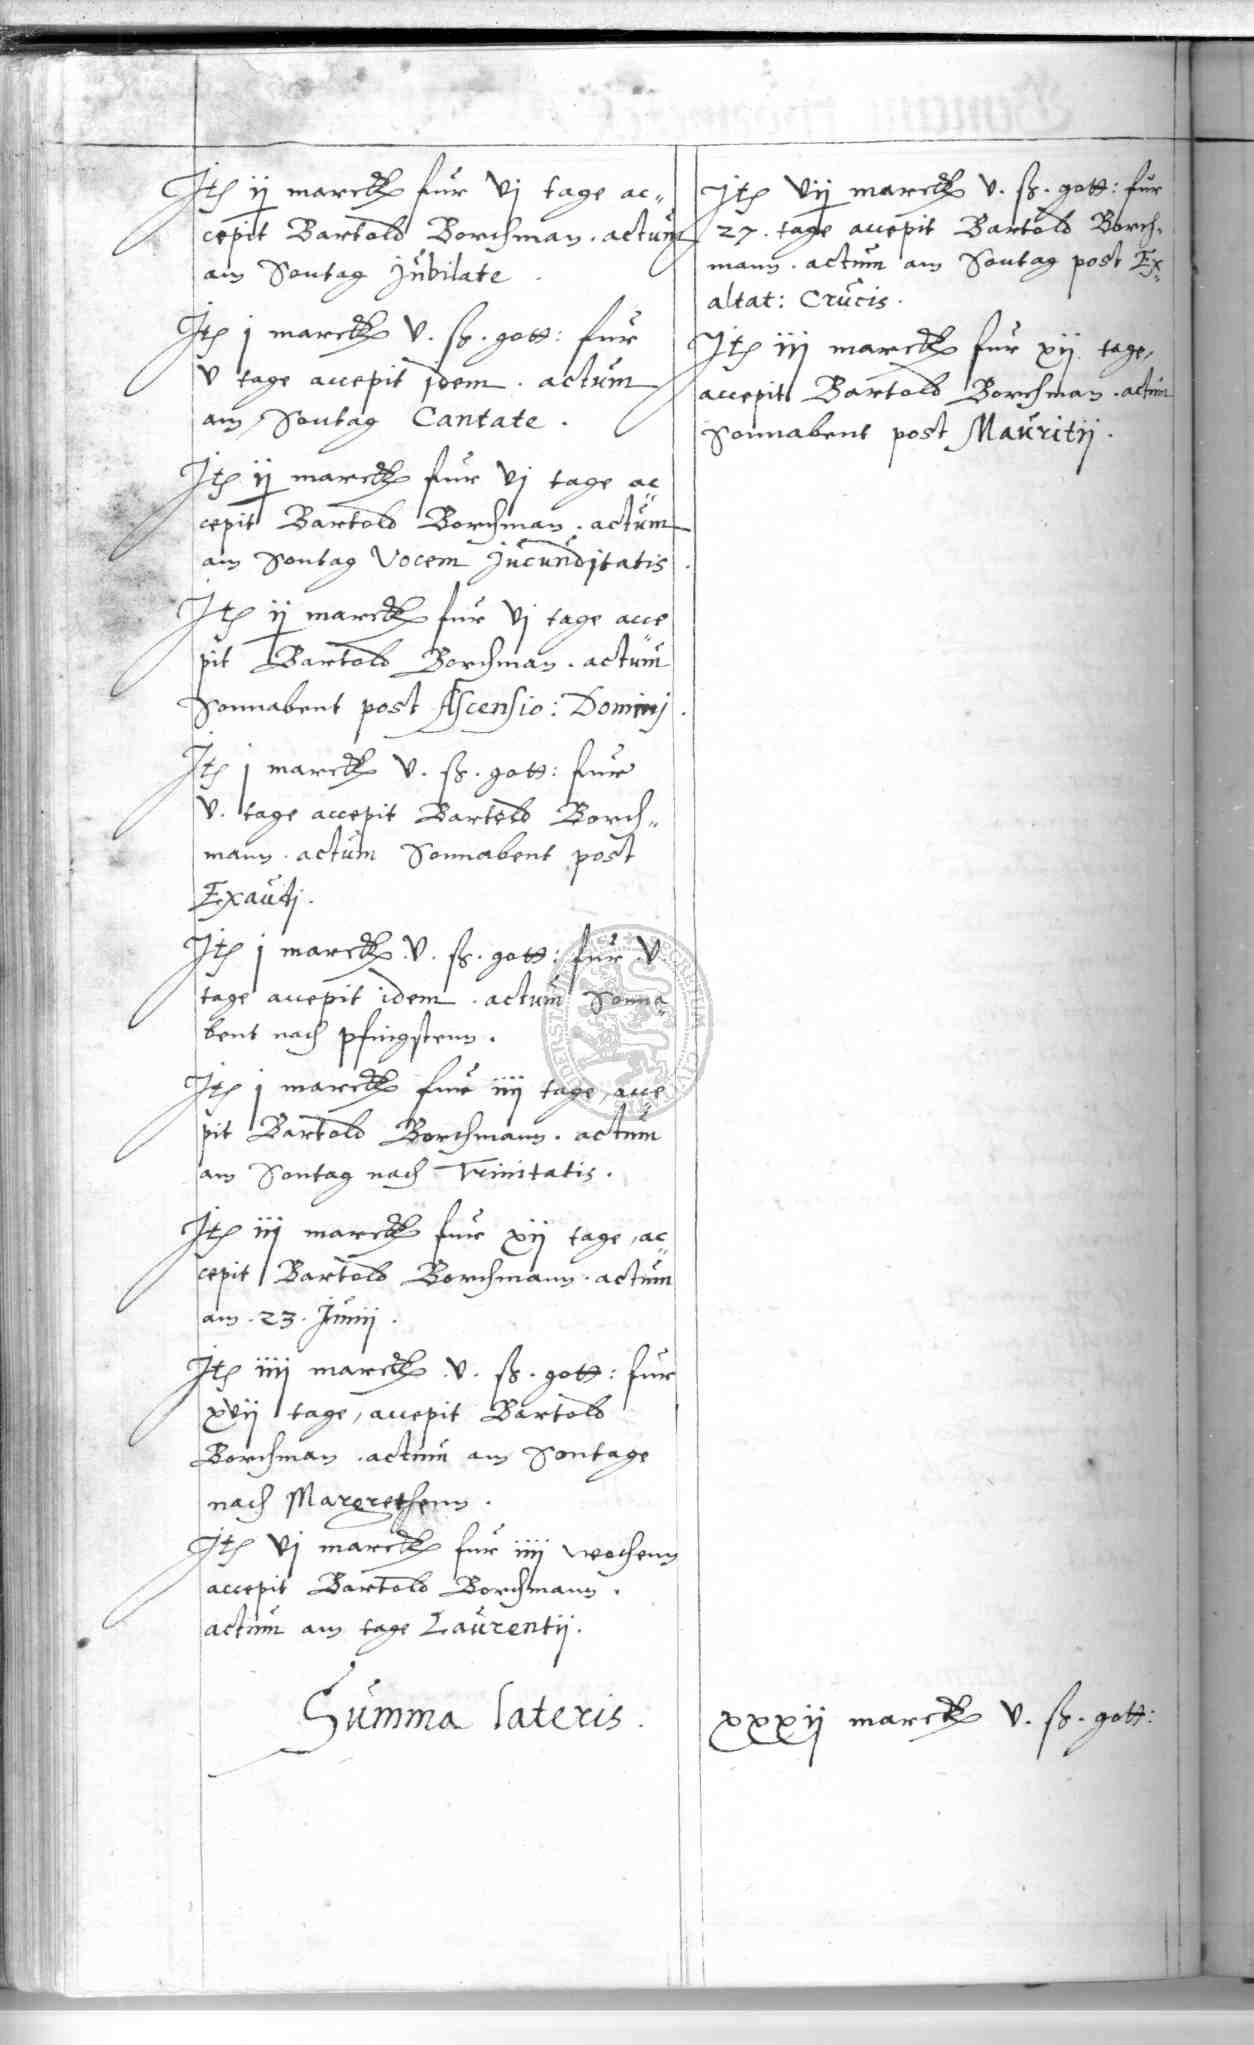 Jtem ij marck fur vj tage ac„
cepit Bartold Borchman . actum
am Sontag Jubilate .
Jtem j marck v . ß . gott: fur
v tage accepit idem . actum
am Sontag Cantate .
Jtem ij marck fur vj tage ac„
cepit Bartold Borchman . actum
am Sontag Vocem Jucunditatis .
Jtem ij marck fur vj tage acce„
pit Bartold Borchman . actum
Sonnabent post Ascensio: Dominj .
Jtem j marck v . ß . gott: fur
v . tage accepit Bartold Borch„
mann . actum Sonnabent post
Exaudj .
Jtem j marck . v . ß . gott: fur . v .
tage accepit idem . actum Sonna„
bent nach pfingstenn .
Jtem j marck fur iiij tage, acce„
pit Bartold Borchmann . actum
am Sontag nach Trinitatis .
Jtem iij marck fur xij tage, ac„
cepit Bartold Borchmann . actum
am . 23 . Junij .
Jtem iiij marck . v . ß . gott: fur
xvij tage, accepit Bartold
Borchman . actum am Sontage
nach Margrethenn .
Jtem vj marck fur iiij wochenn
accepit Bartold Borchmann .
actum am tage Laurentij .
Summa lateris .
Jtem vij marck v . ß . gott: fur
27 . tage accepit Bartold Borch„
mann . actum am Sontag post Ex„
altat: Crucis .
Jtem iij marck fur xij tage,
accepit Bartold Borchman . actum
Sonnabent post Mauritij .
xxxij marck v . ß . gott: